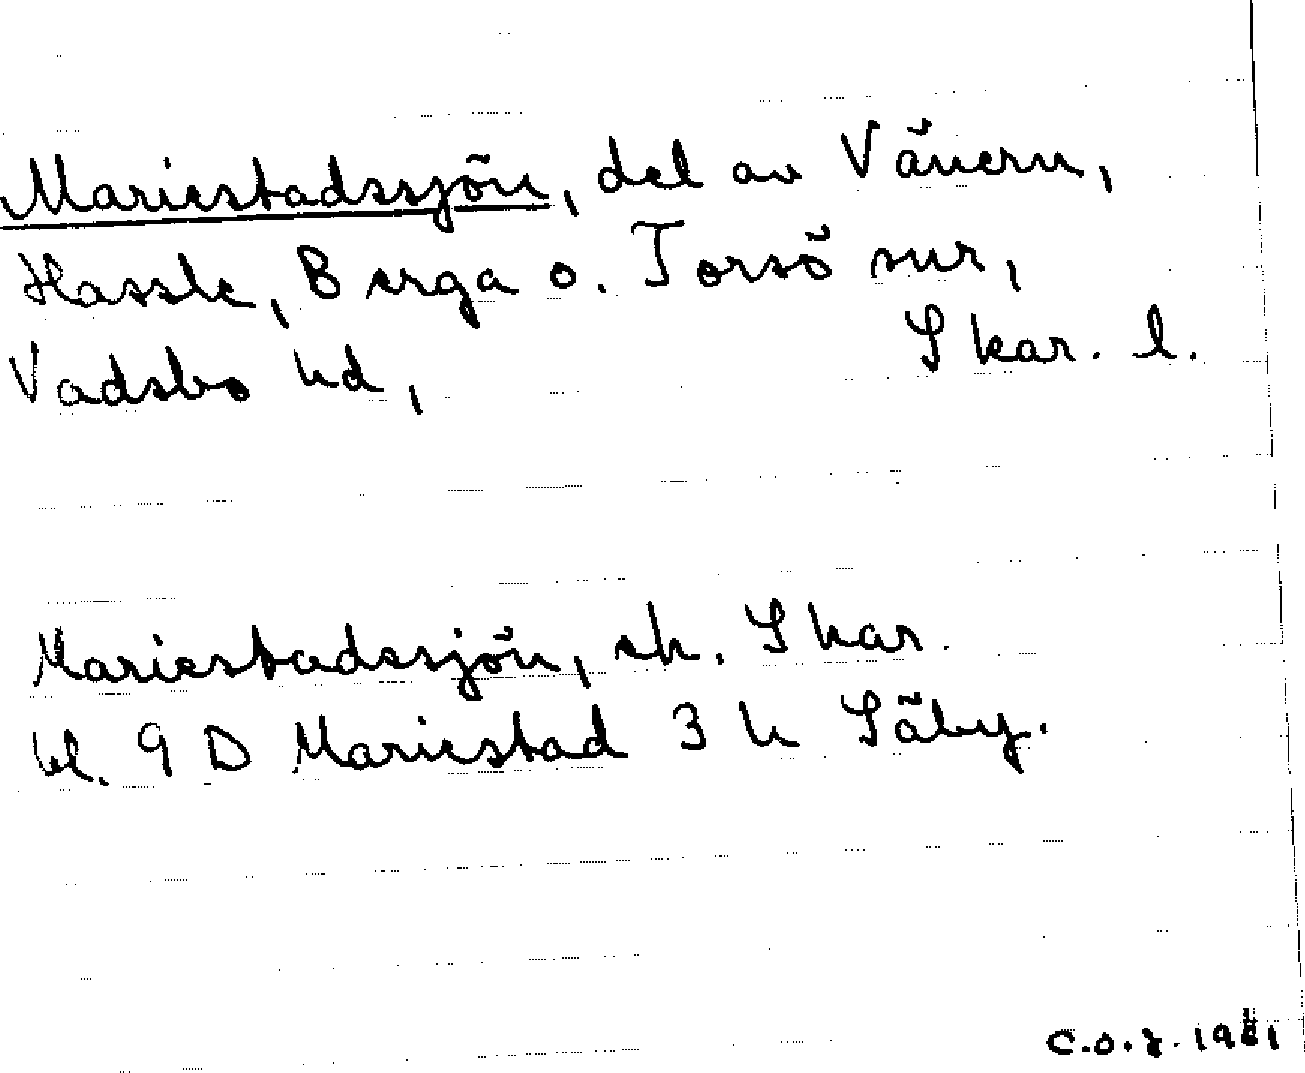 Mariestadssjön, del av Vänern,
Hassle, Berga o. Torsö snr,
Vadsbo hd, Skar. l.
Mariestadssjön, ek. Skar.
bl. 9 D Mariestad 3 h Säby.
C.O.Z.